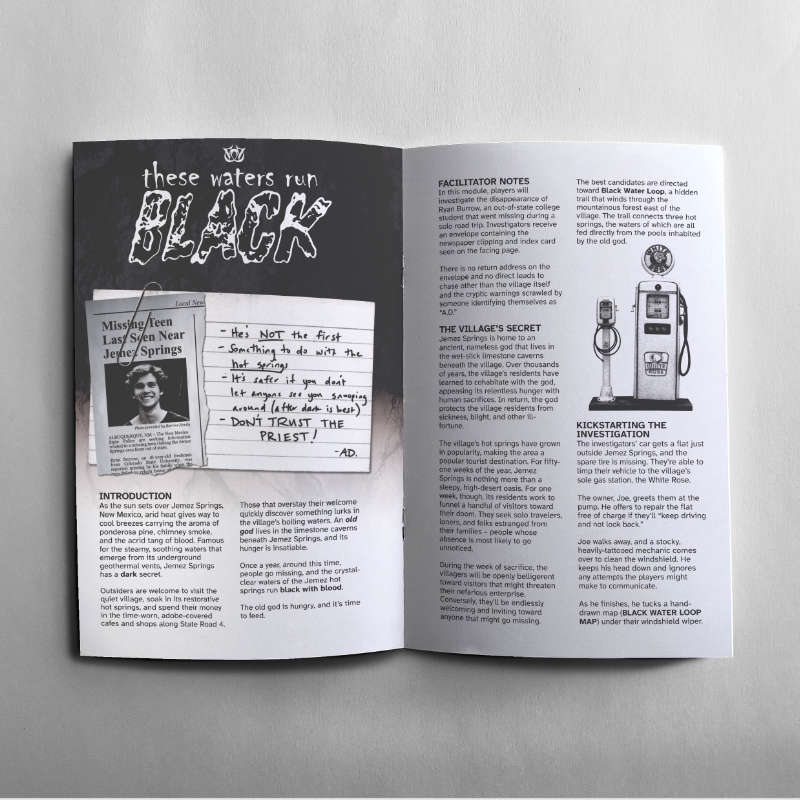 these waters run
BLACK
Local News
Missing Teen
Last Seen Near
Jemez Springs
ALBUQUERQUE, NM – The New Mexico
State Police are seeking information
- He's NOT the first
- Something to do with the
hot springs
- It's safer if you don't
let anyone see you snooping
around (after dark is best)
- DON'T TRUST THE
PRIEST!
-AD.
INTRODUCTION
As the sun sets over Jemez Springs,
New Mexico, and heat gives way to
cool breezes carrying the aroma of
ponderosa pine, chimney smoke,
and the acrid tang of blood. Famous
for the steamy, soothing waters that
emerge from its underground
geothermal vents, Jemez Springs
has a dark secret.
Outsiders are welcome to visit the
quiet village, soak in its restorative
hot springs, and spend their money
in the time-worn, adobe-covered
cafes and shops along State Road 4.
Those that overstay their welcome
quickly discover something lurks in
the village's boiling waters. An old
god lives in the limestone caverns
beneath Jemez Springs, and its
hunger is insatiable.
Once a year, around this time,
people go missing, and the crystal-
clear waters of the Jemez hot
springs run black with blood.
The old god is hungry, and it's time
to feed.
FACILITATOR NOTES
In this module, players will
investigate the disappearance of
Ryan Burrow, an out-of-state college
student that went missing during a
solo road trip. Investigators receive
an envelope containing the
newspaper clipping and index card
seen on the facing page.
There is no return address on the
envelope and no direct leads to
chase other than the village itself
and the cryptic warnings scrawled by
someone identifying themselves as
"A.D."
THE VILLAGE'S SECRET
Jemez Springs is home to an
ancient, nameless god that lives in
the wet-slick limestone caverns
beneath the village. Over thousands
of years, the village's residents have
learned to cohabitate with the god,
appeasing its relentless hunger with
human sacrifices. In return, the god
protects the village residents from
sickness, blight, and other ill-
fortune.
The village's hot springs have grown
in popularity, making the area a
popular tourist destination. For fifty-
one weeks of the year, Jemez
Springs is nothing more than a
sleepy, high-desert oasis. For one
week, though, its residents work to
funnel a handful of visitors toward
their doom. They seek solo travelers,
loners, and folks estranged from
their families – people whose
absence is most likely to go
unnoticed.
During the week of sacrifice, the
villagers will be openly belligerent
toward visitors that might threaten
their nefarious enterprise.
Conversely, they'll be endlessly
welcoming and inviting toward
anyone that might go missing.
The best candidates are directed
toward Black Water Loop, a hidden
trail that winds through the
mountainous forest east of the
village. The trail connects three hot
springs, the waters of which are all
fed directly from the pools inhabited
by the old god.
WHITE
ROSE
KICKSTARTING THE
INVESTIGATION
The investigators' car gets a flat just
outside Jemez Springs, and the
spare tire is missing. They're able to
limp their vehicle to the village's
sole gas station, the White Rose.
The owner, Joe, greets them at the
pump. He offers to repair the flat
free of charge if they'll "keep driving
and not look back."
Joe walks away, and a stocky,
heavily-tattooed mechanic comes
over to clean the windshield. He
keeps his head down and ignores
any attempts the players might
make to communicate.
As he finishes, he tucks a hand-
drawn map (BLACK WATER LOOP
MAP) under their windshield wiper.